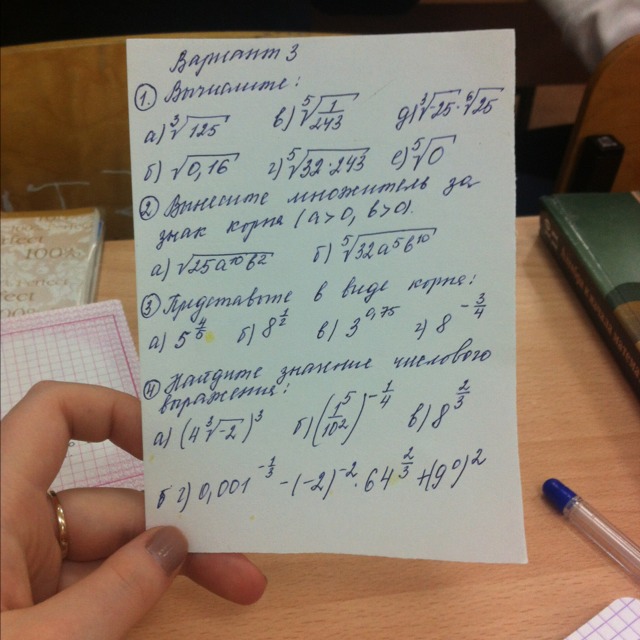 Вариант 3
① Вычислите:
а) ∛125 в) ⁵√(1/243) д) ∛-25 · ⁶√25
б) √0,16 г) ⁵√32·243 е) ⁵√0
② Вынесите множитель за
знак корня (a>0, b>0).
а) √25a¹⁰b² б) ⁵√32a⁵b¹⁰
③ Представьте в виде корня:
б) 8^(1/2) в) 3^0,75 г) 8^(-3/4)
④ Найдите значение числового
выражения:
а) (4∛-2)³ в) 8^(2/3)
г) 0,001^(-1/3) - (-2)⁻² · 64^(2/3) + (9⁰)²
100%
100%